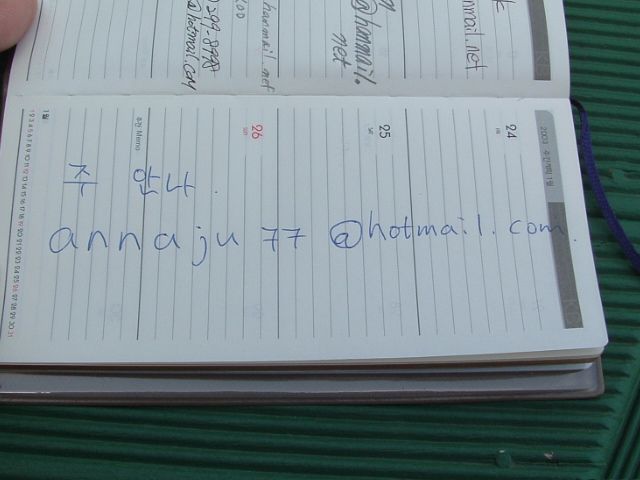 주 안나.
annaju 77 @hotmail.com.
24
25
26
Memo
2003
1월
1 2 3 4 5 6 7 8 9 10 11 12 13 14 15 16 17 18 19 20 21 22 23 24 25 26 27 28 29 30 31
@hotmail.com
hanmail.net
@hanmail.
net
mail.net